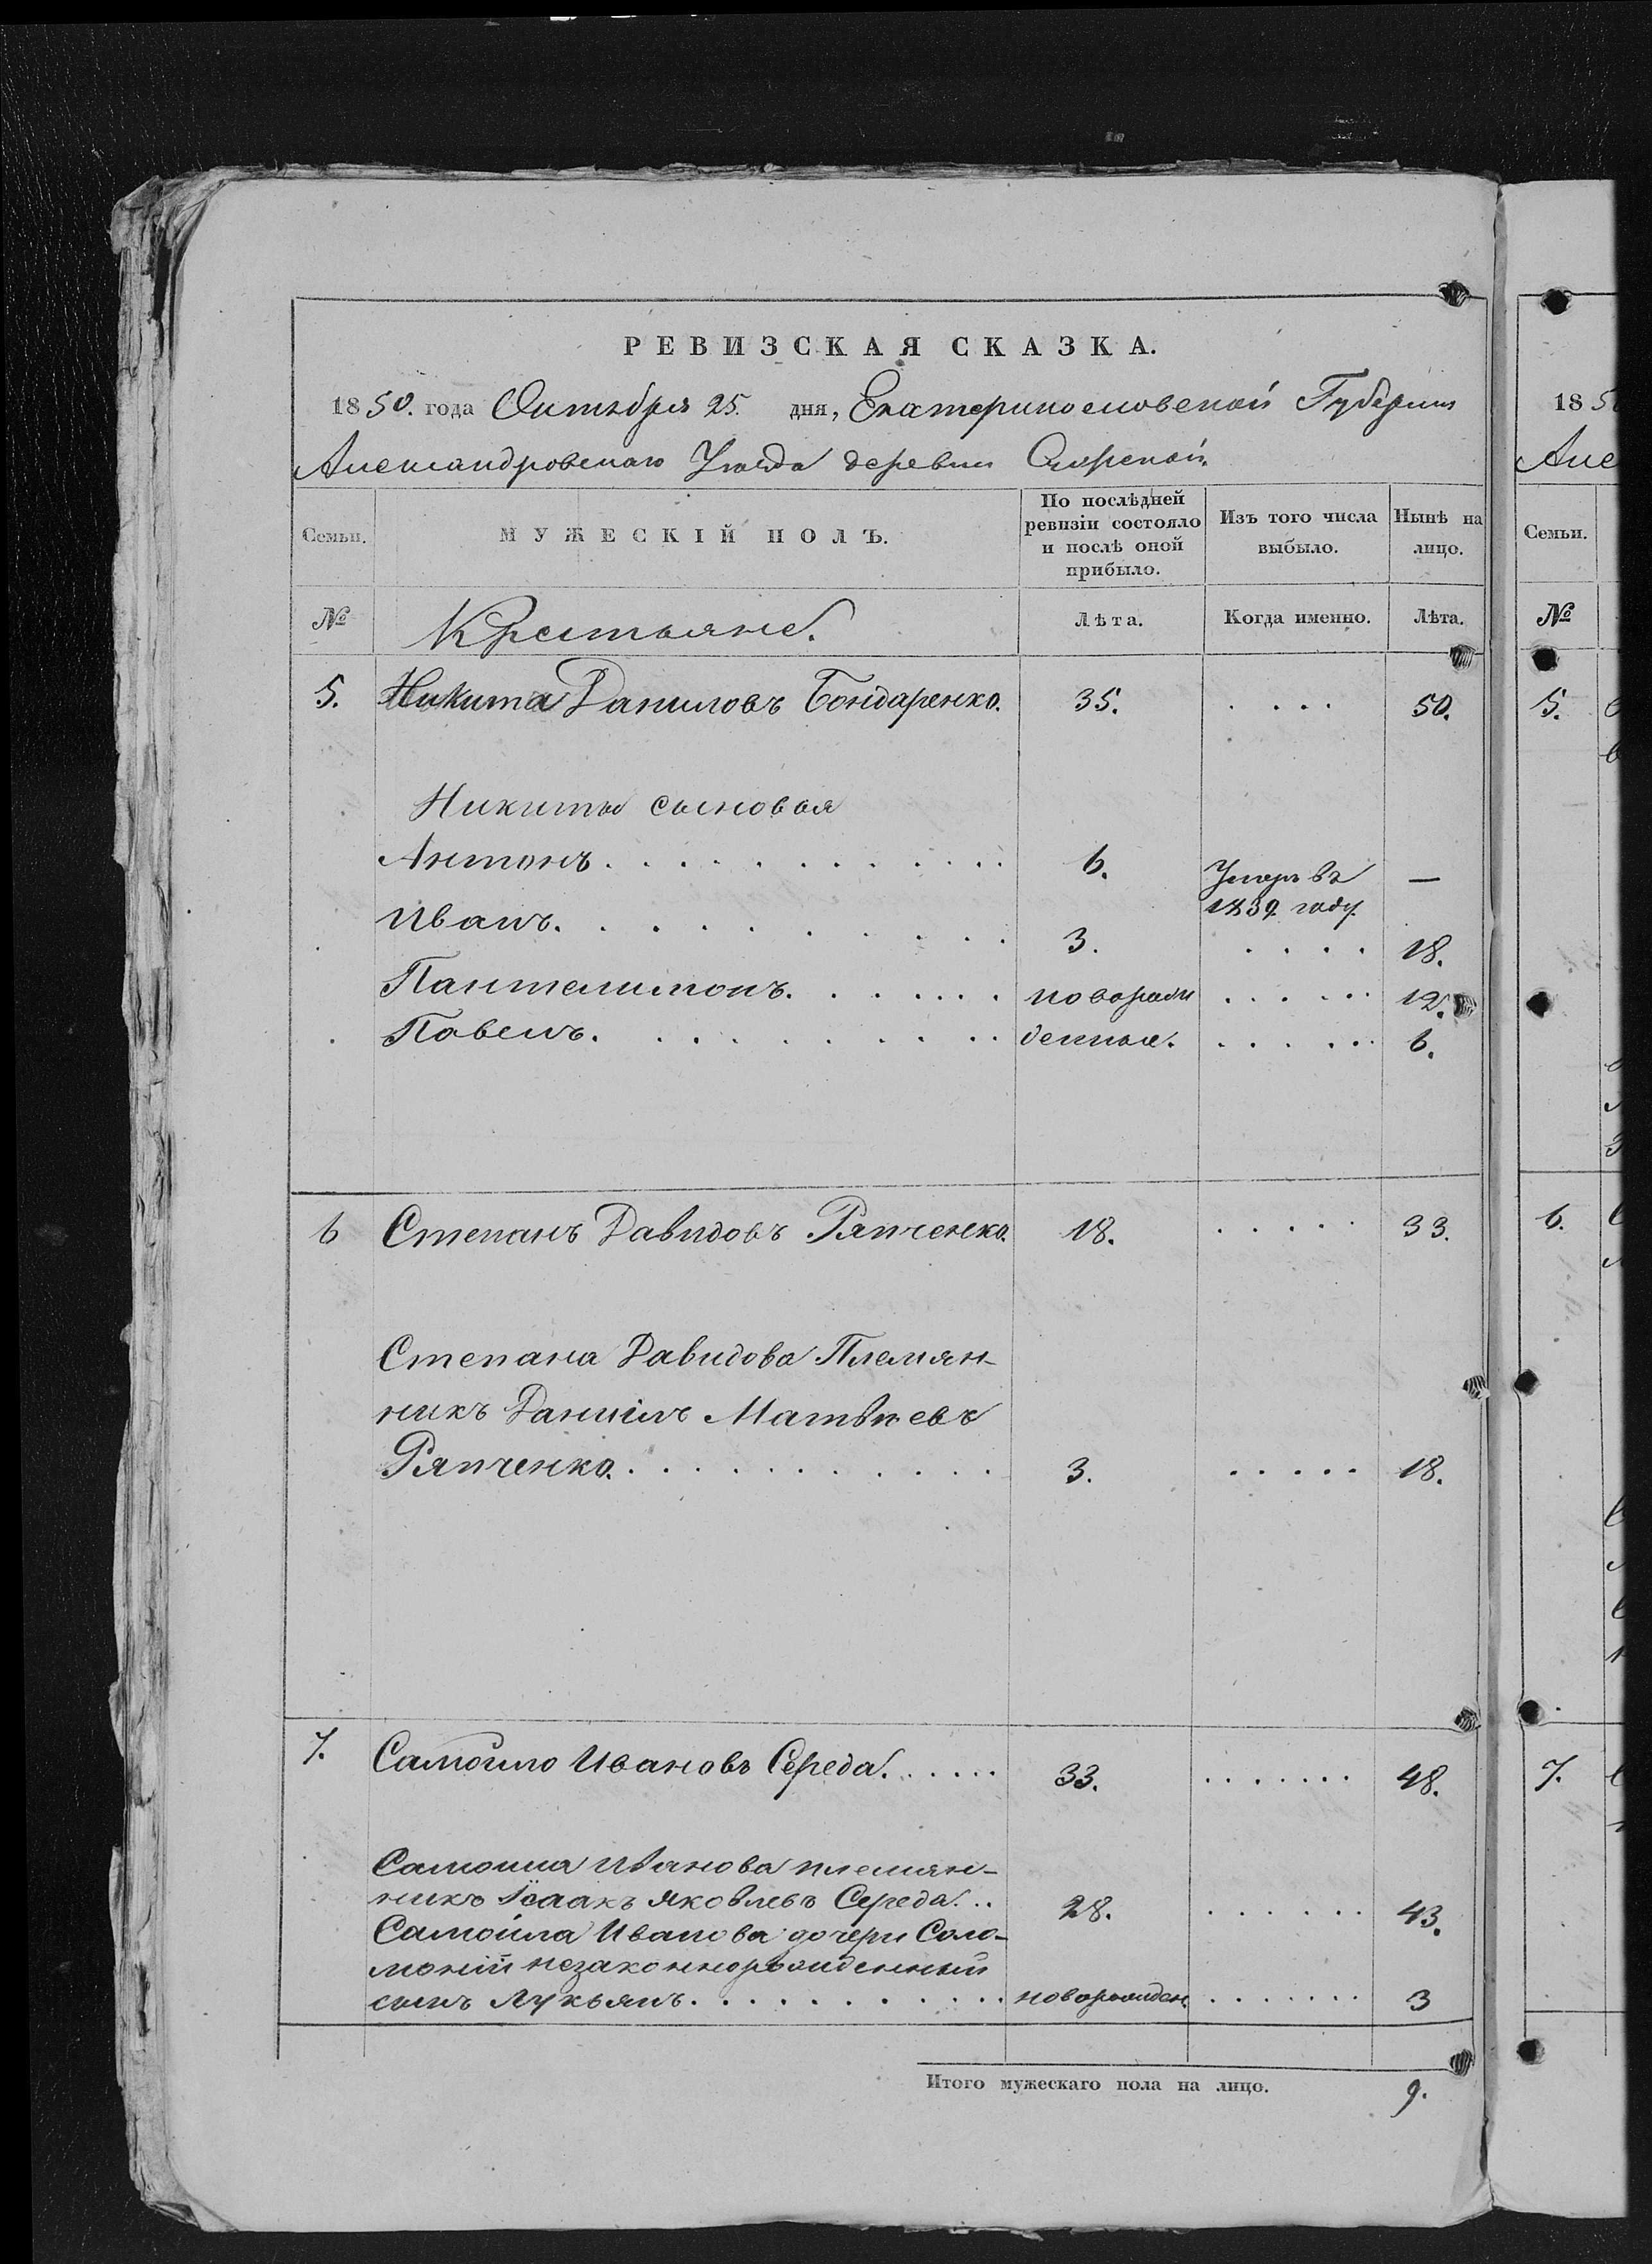 РЕВИЗСКАЯ СКАЗКА.
1850. года Октября 25. дня, Екатеринославской Губернии
Александровскаго Уѣзда деревни
Семьи. МУЖЕСКІЙ ПОЛЪ. По послѣдней ревизіи состояло и послѣ оной прибыло. Изъ того числа выбыло. Нынѣ на лицо.
№ Крестьяне. Лѣта. Когда именно. Лѣта.
5. Никита Даниловъ Бондаренко. 35. .... 50.
Никиты сыновья
Антонъ. 6. Умеръ въ —
1839 году.
Иванъ. 3. .... 18.
Пантелимонъ. новорож ...... 12.
Павелъ. денные. ...... 6.
6 Степанъ Давидовъ Ряпченко. 18. ..... 33.
Степана Давидова Племян-
никъ Даниилъ Матвѣевъ
Ряпченко. 3. ..... 18.
7. Самойло Ивановъ Середа. 33. ....... 48.
Самойла Иванова племян-
никъ Исаакъ Яковлевъ Середа. 28. ...... 43.
Самойла Иванова дочери Соло-
моніи незаконнорожденный
сынъ Лукьянъ. новорожден. ....... 3
Итого мужескаго пола на лицо. 9.
185
Але
Семьи.
№
5.
6.
7.